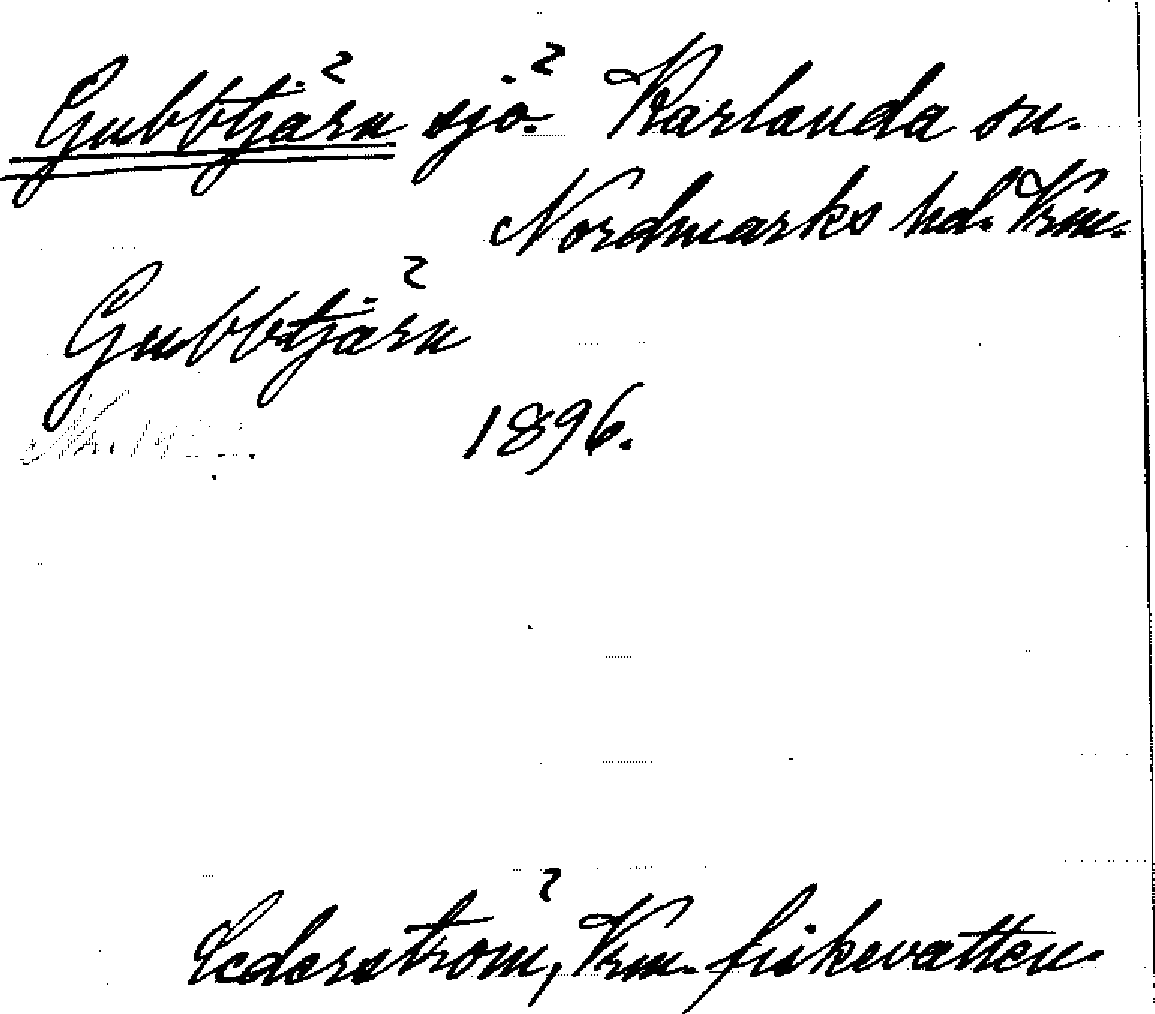 Gubbtjärn sjö. Karlanda sn.
Nordmarks hd. Vrm.
Gubbtjärn
1896.
Cederström, Vrm. fiskevatten.